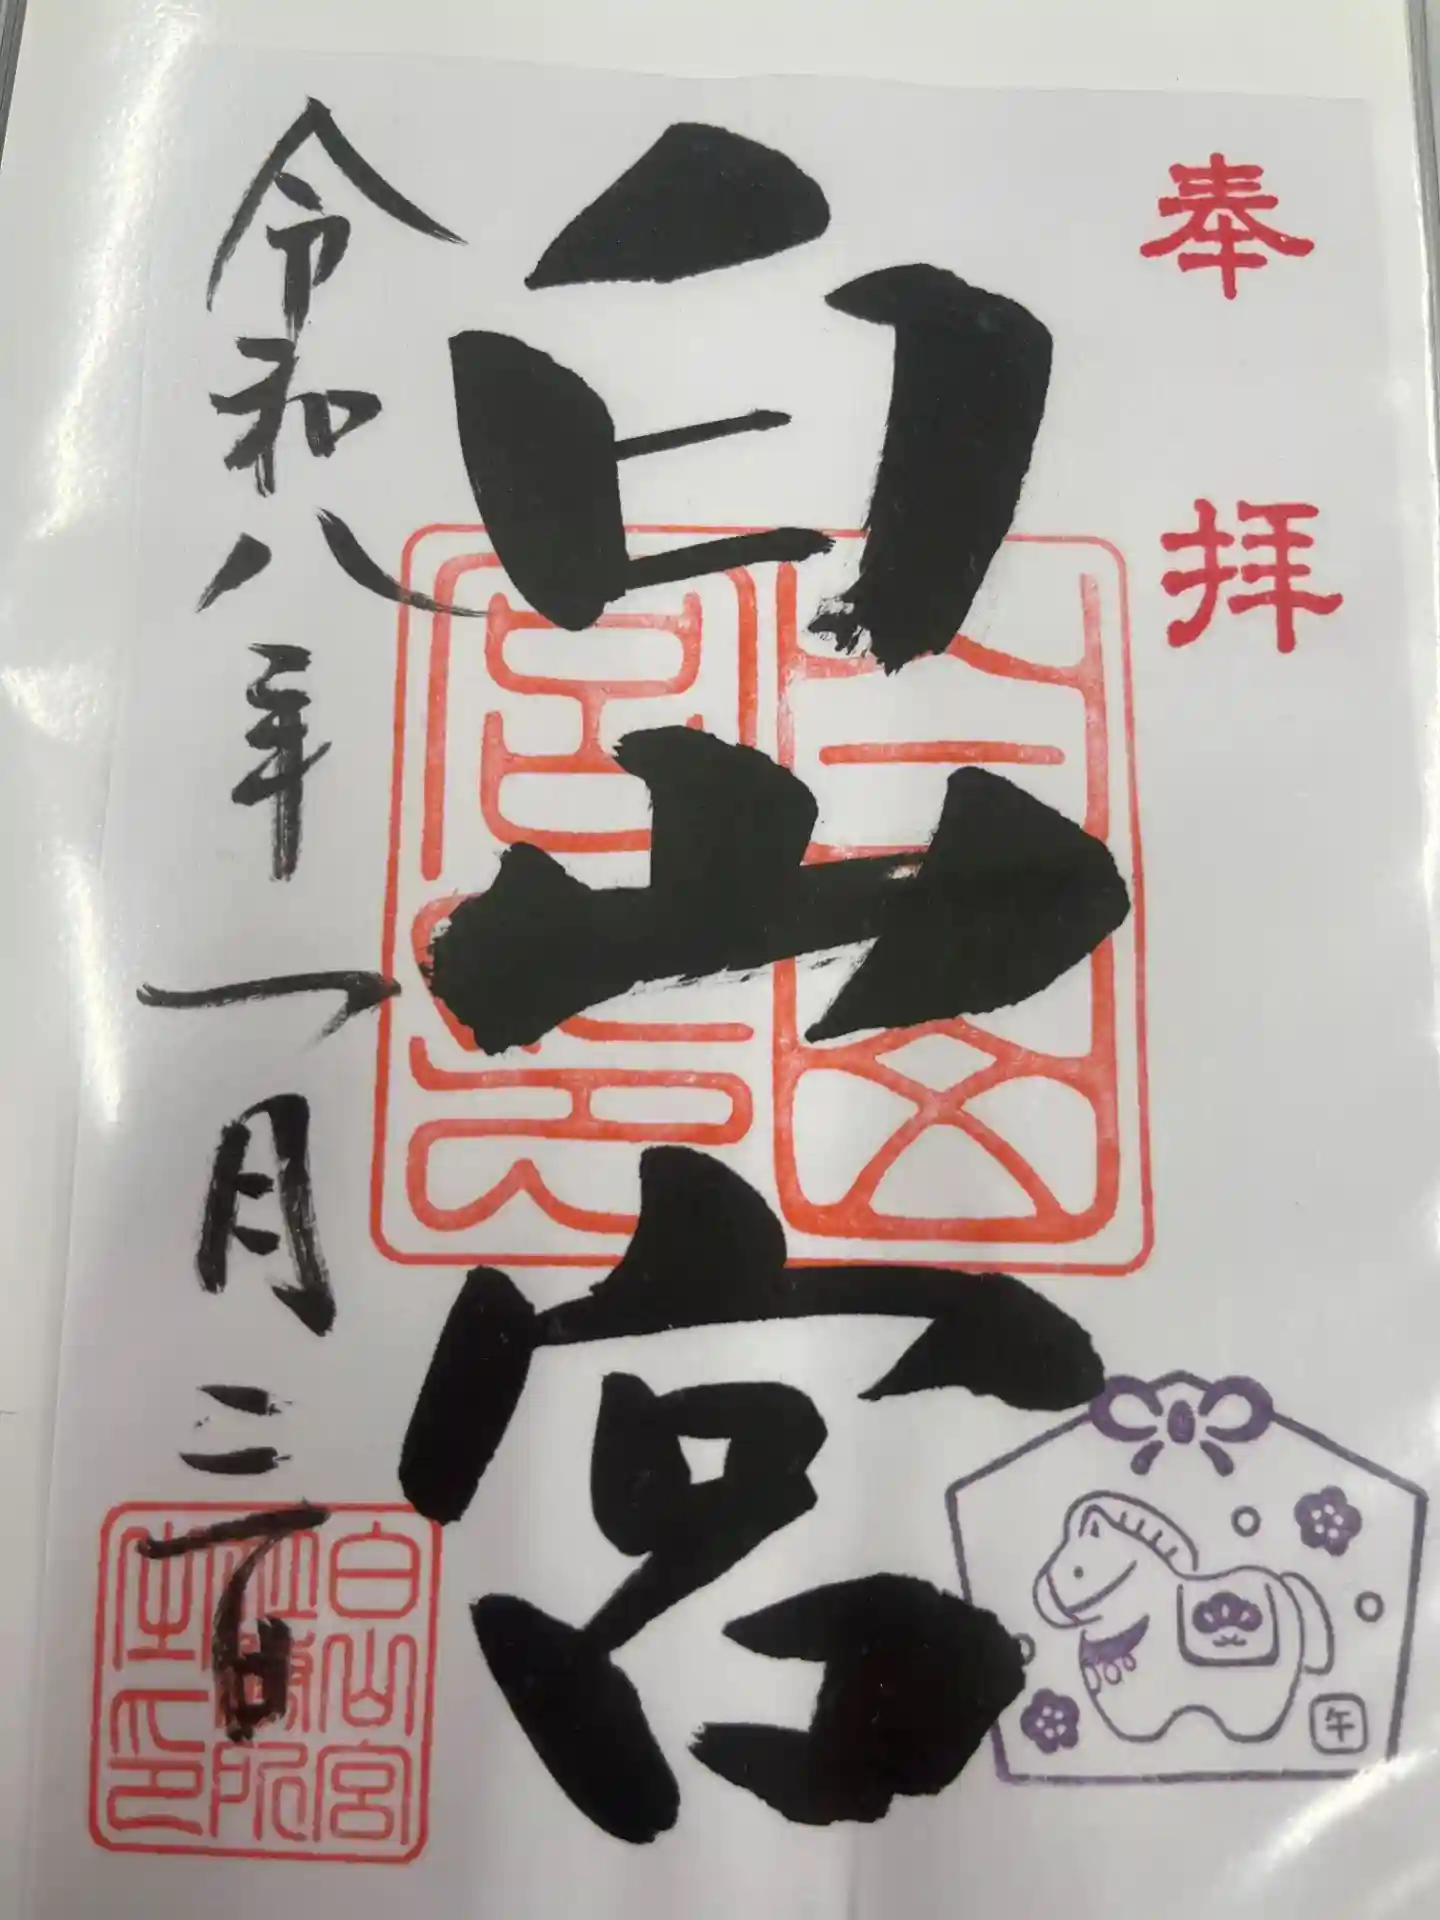 奉拝
白山宮
令和八年一月二日
白山宮
社務所
之印
午